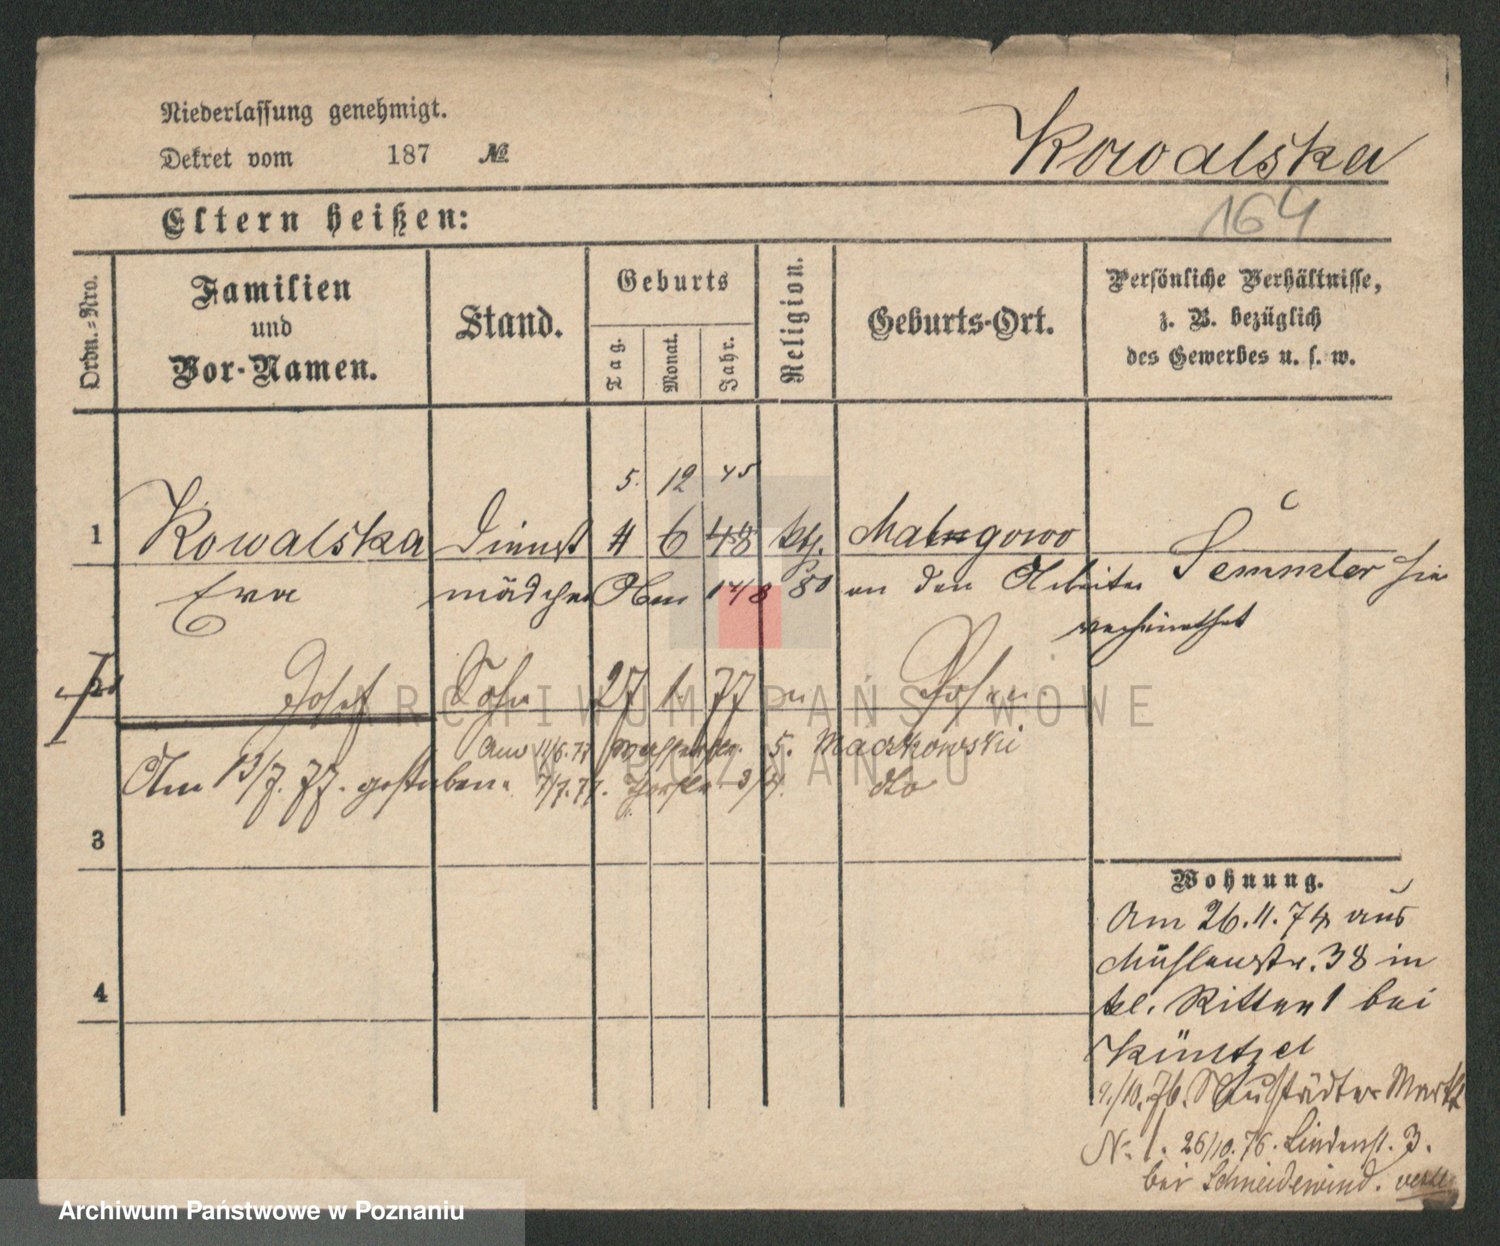 Niederlassung genehmigt.
Dekret vom 187 №
Kowalska
164
Eltern heißen:
Ordn.-Nro.
Familien und Vor-Namen.
Stand.
Geburts
Tag.
Monat.
Jahr.
Religion.
Geburts-Ort.
Persönliche Verhältnisse,
z. B. bezüglich
des Gewerbes u. s. w.
5. 12 45
1 Kowalska Dienst 4 6 48 kth.
Eva mädchen 80 an den Arbeiter Semmler hier
verheirathet
2 Josef Sohn 27 1 77 " Posen
Am 11/6. 77 5. Maczkowski
Am 13/7. 77. gestorben. 7/7. 77. 3/4. do
3
4
Wohnung.
Am 26.11.74 aus
Mühlenstr. 38 in
kl. Ritter 1 bei
Küntzel
9/10. 76. Neustädter Markt
No 1. 26/10. 76. Lindenst. 3.
bei Schneidewind.
ARCHIWUM PAŃSTWOWE
W POZNANIU
Archiwum Państwowe w Poznaniu